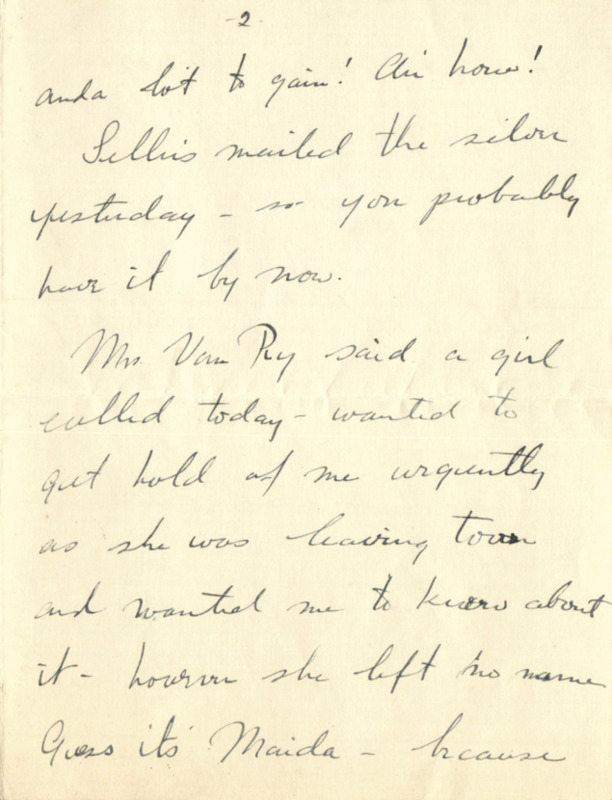 -2-
and a lot to gain! Air hour!
Sellins mailed the silver
yesterday - so you probably
have it by now.
Mrs. Van Ry said a girl
called today - wanted to
get hold of me urgently
as she was leaving town
and wanted me to know about
it - however she left no name
Guess it's Maida - because